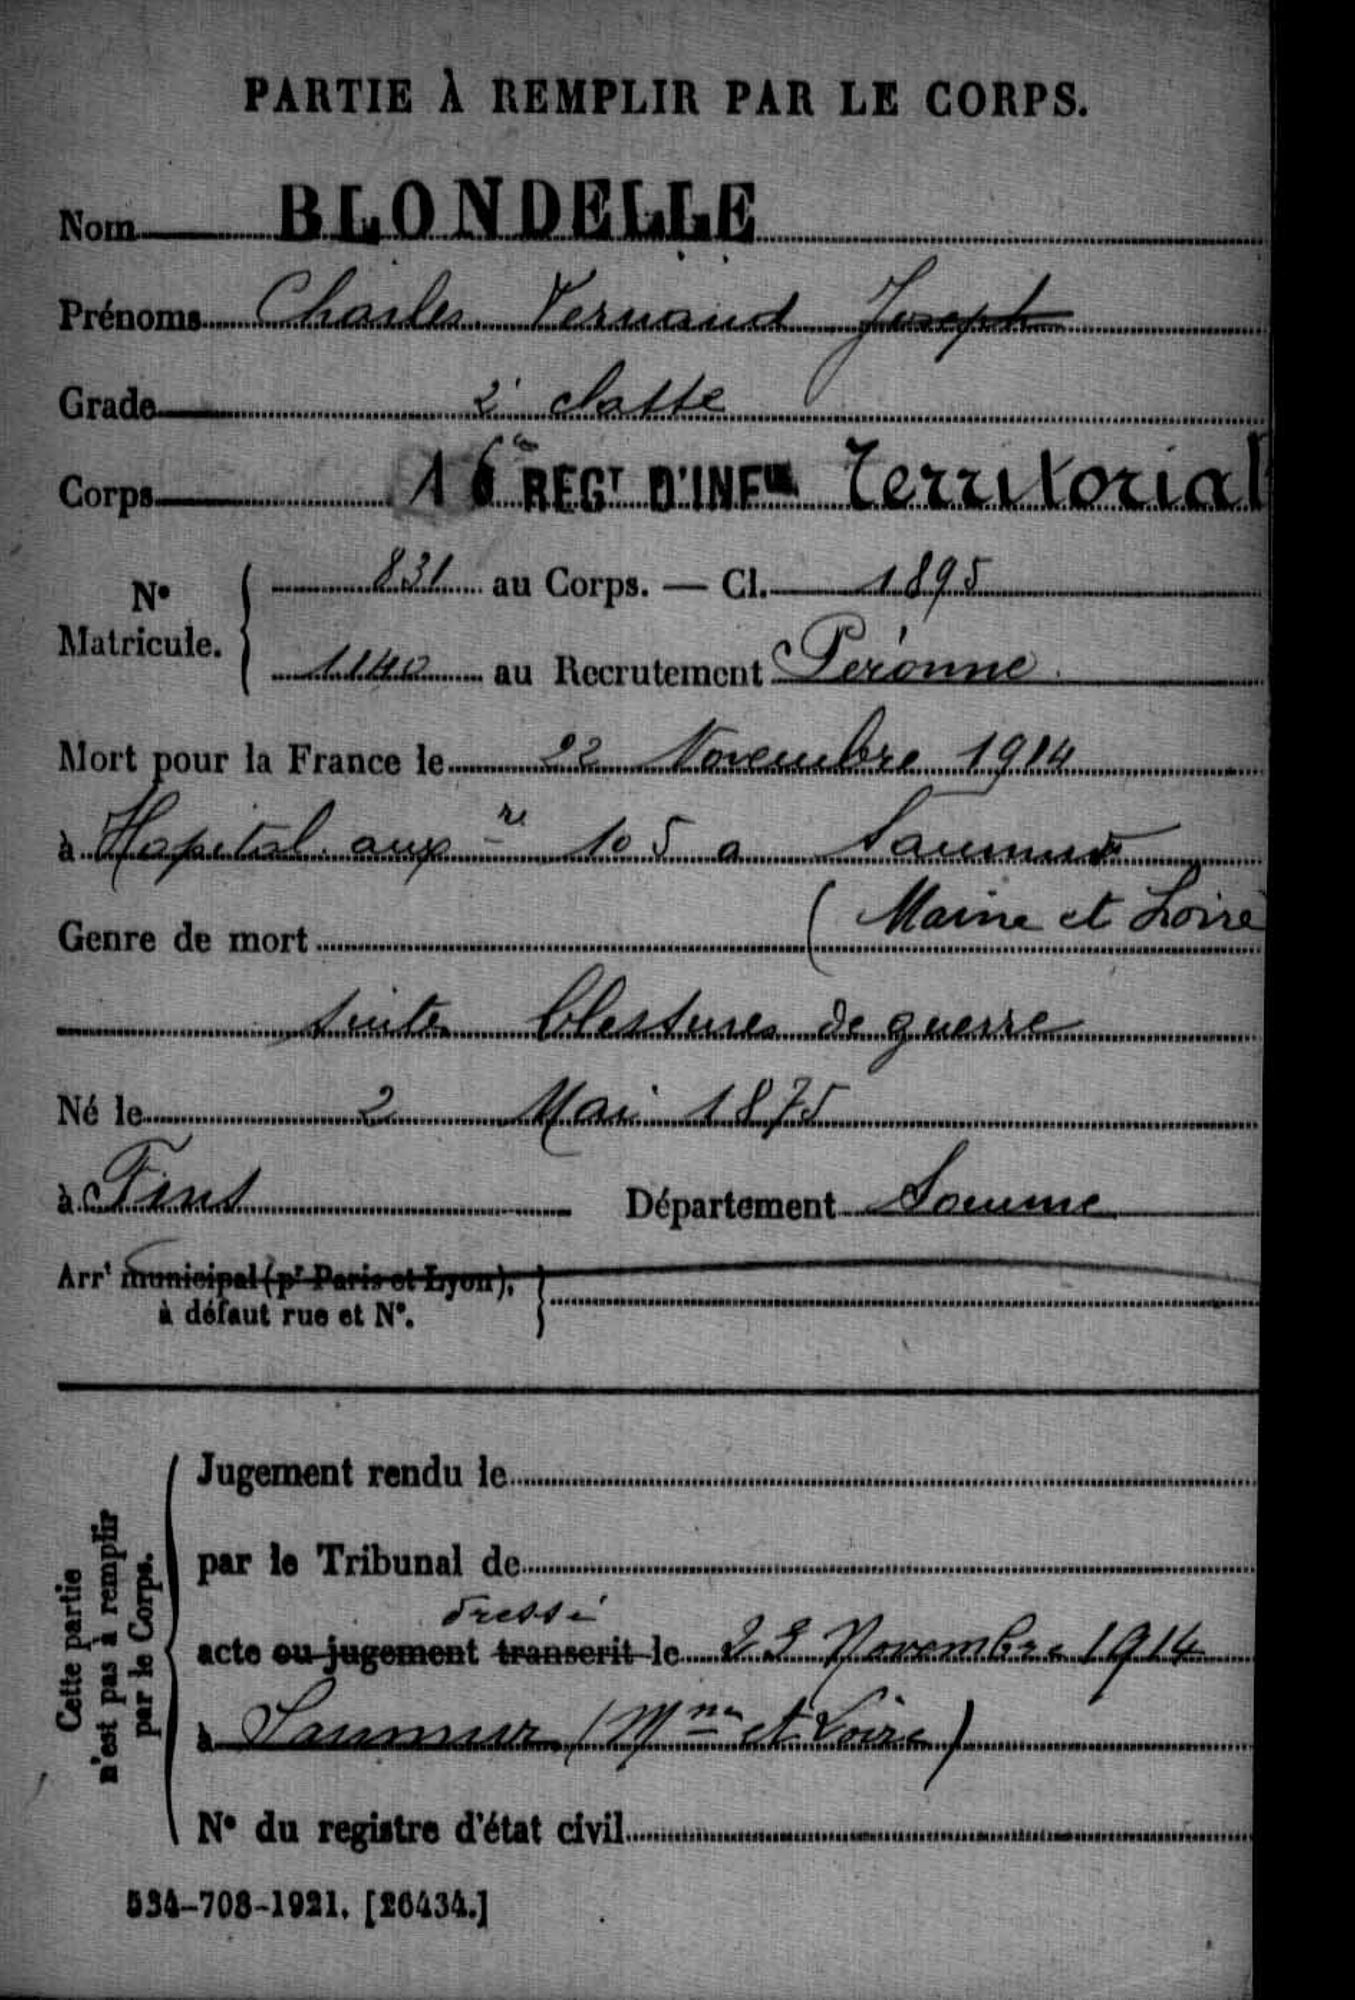 PARTIE À REMPLIR PAR LE CORPS.
Nom BLONDELLE
Prénoms Charles Fernand Joseph
Grade 2e classe
Corps 16e REGT D'INFIE Territorial
N° Matricule. 831 au Corps. — Cl. 1895
1140 au Recrutement Péronne
Mort pour la France le 22 Novembre 1914
à Hopital auxre 105 a Saumur
(Maine et Loire
Genre de mort
suite blessures de guerre
Né le 2 Mai 1875
à Fins Département Somme
Arrt municipal (pr Paris et Lyon),
à défaut rue et N°.
Cette partie
n'est pas à remplir
par le Corps.
Jugement rendu le
par le Tribunal de
dressé
acte ou jugement transcrit le 23 Novembre 1914
à Saumur (Mne et Loire)
N° du registre d'état civil
534-708-1921. [26434.]